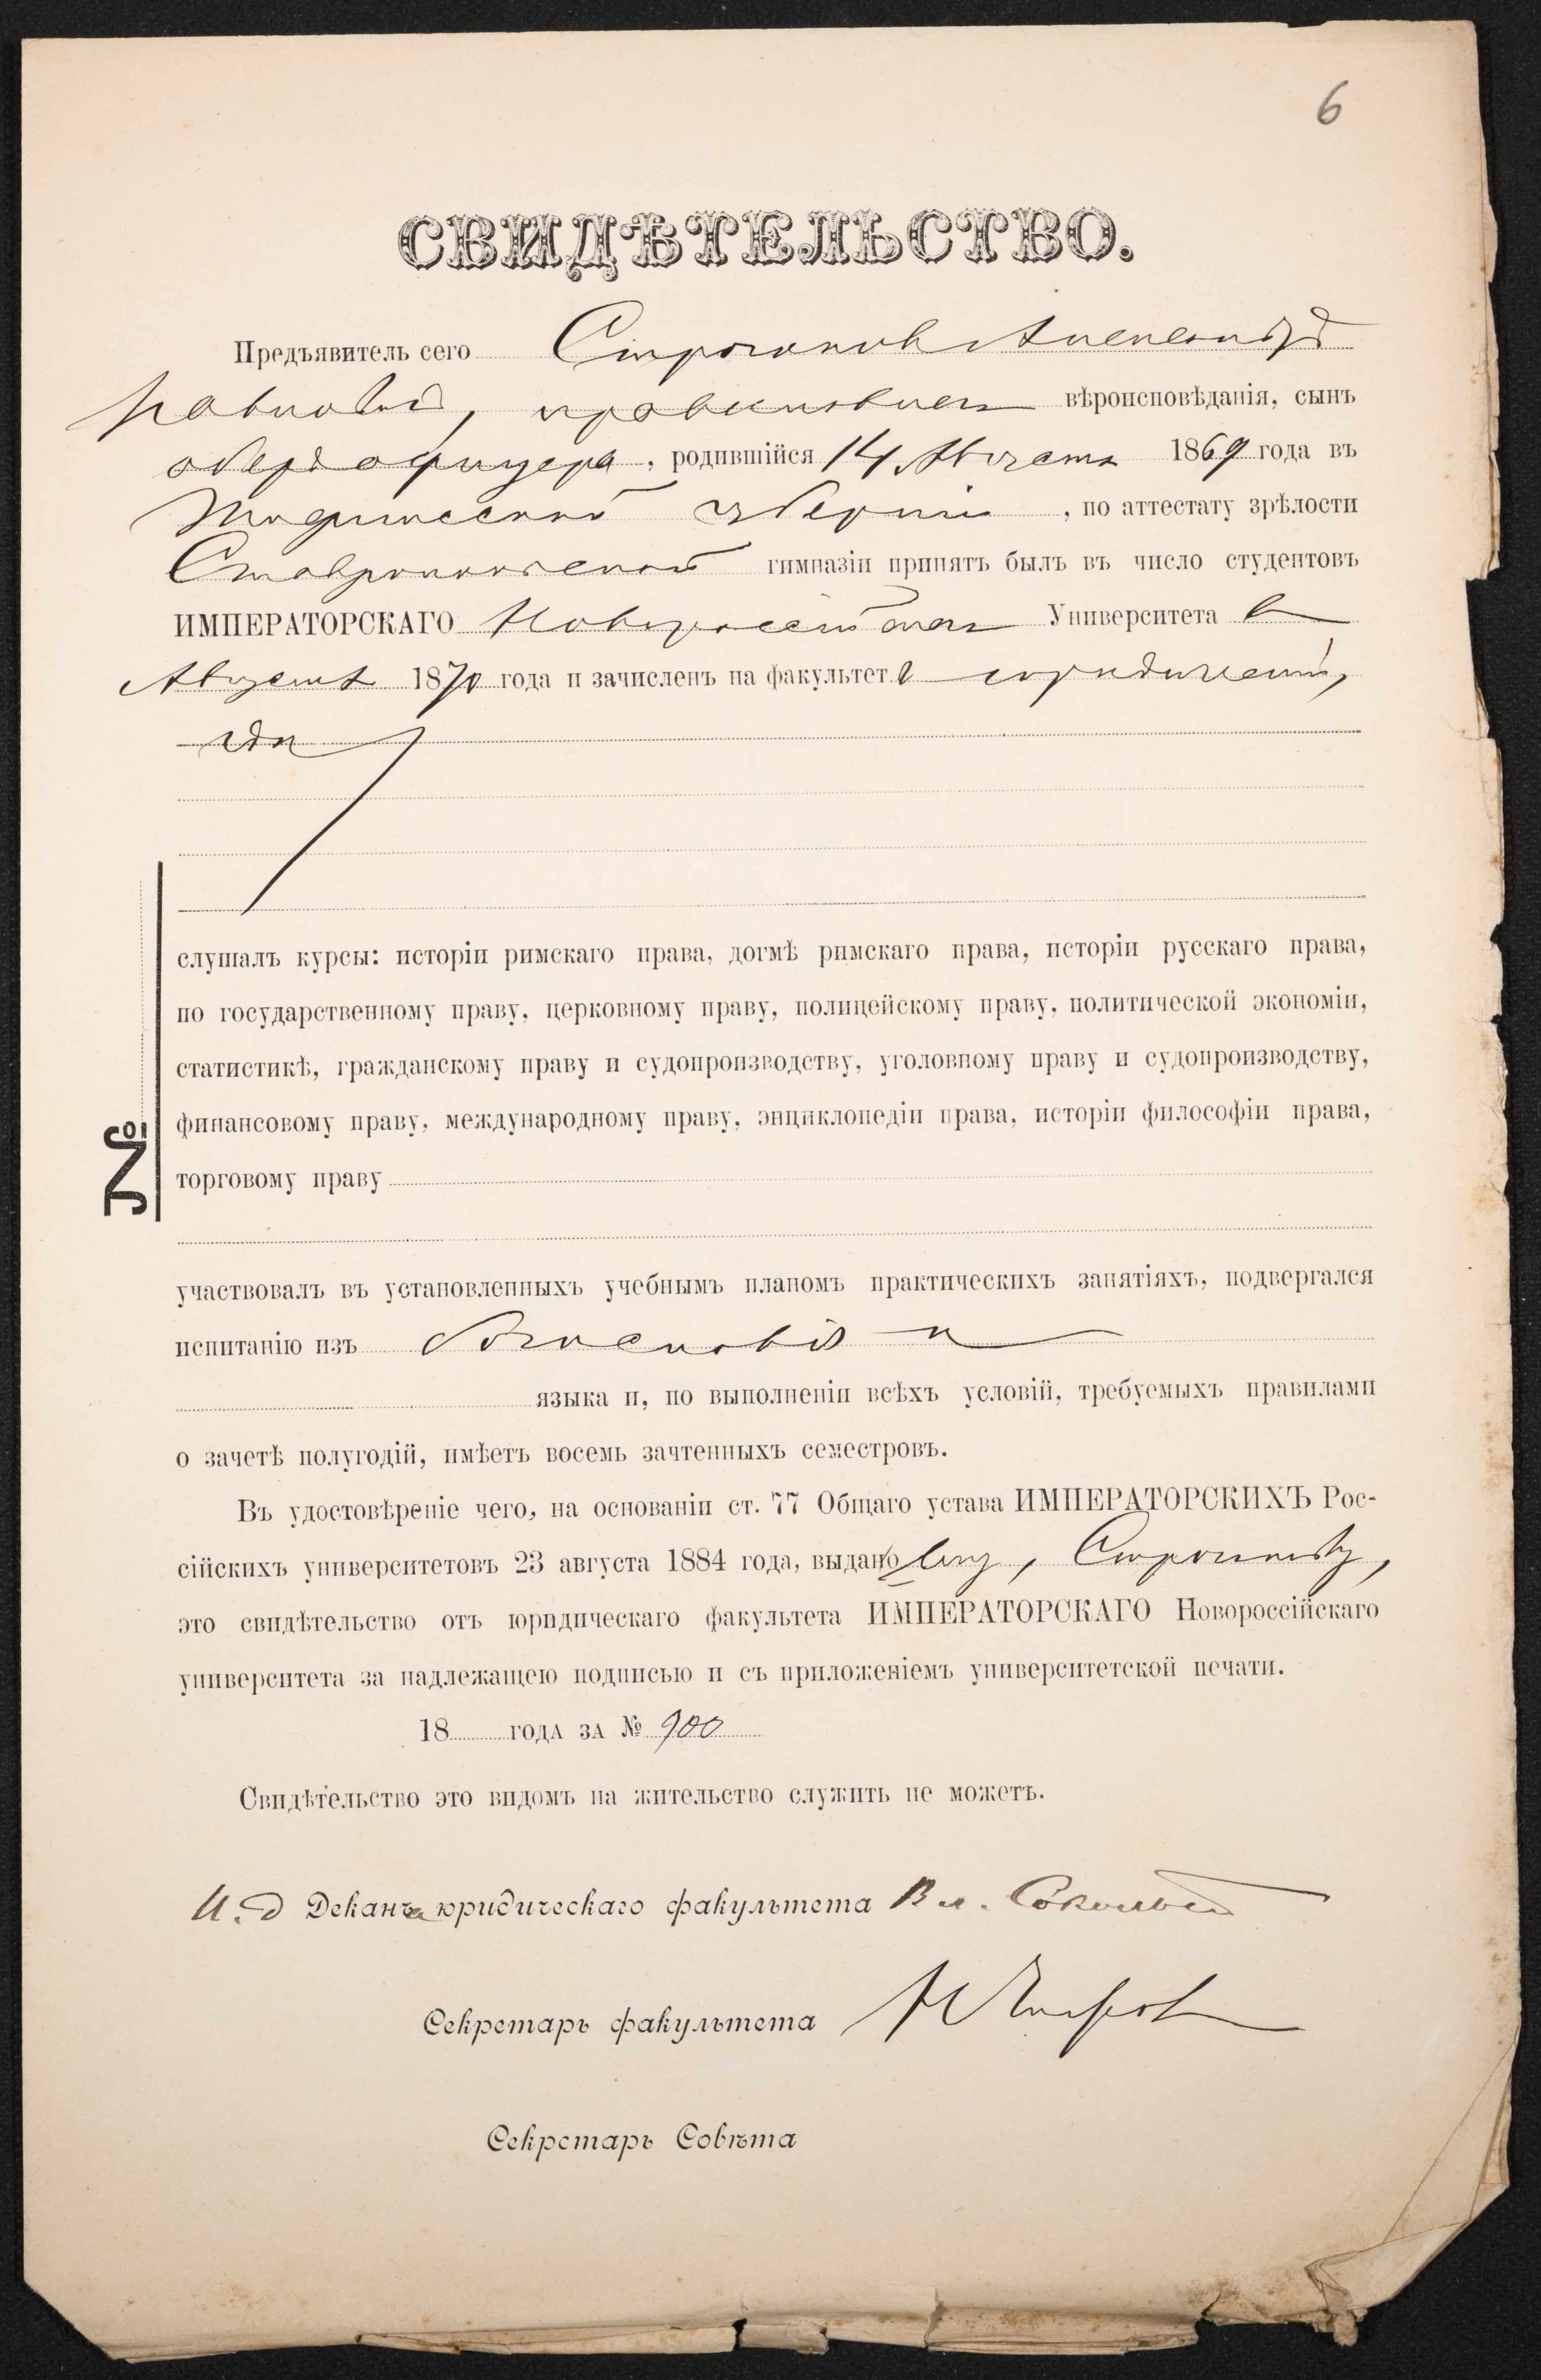 6
СВИДѢТЕЛЬСТВО.
Предъявитель сего Строгоновъ Александръ
Павловичъ, православнаго вѣроисповѣданія, сынъ
оберъ офицера, родившійся 14 Августа 1869 года въ
Тифлисской губерніи, по аттестату зрѣлости
Ставропольской гимназіи принятъ былъ въ число студентовъ
ИМПЕРАТОРСКАГО Новороссійскаго Университета въ
Августѣ 18 года и зачисленъ на факультетъ юридическій,
гдѣ
слушалъ курсы: исторіи римскаго права, догмѣ римскаго права, исторіи русскаго права,
по государственному праву, церковному праву, полицейскому праву, политической экономіи,
статистикѣ, гражданскому праву и судопроизводству, уголовному праву и судопроизводству,
финансовому праву, международному праву, энциклопедіи права, исторіи философіи права,
торговому праву
№
участвовалъ въ установленныхъ учебнымъ планомъ практическихъ занятіяхъ, подвергался
испитанію изъ
языка и, по выполненіи всѣхъ условій, требуемыхъ правилами
о зачетѣ полугодій, имѣетъ восемь зачтенныхъ семестровъ.
Въ удостовѣреніе чего, на основаніи ст. 77 Общаго устава ИМПЕРАТОРСКИХЪ Рос-
сійскихъ университетовъ 23 августа 1884 года, выдано ему, Строгонову,
это свидѣтельство отъ юридическаго факультета ИМПЕРАТОРСКАГО Новороссійскаго
университета за надлежащею подписью и съ приложеніемъ университетской печати.
18 года за № 900
Свидѣтельство это видомъ на жительство служить не можетъ.
И. д Декана юридическаго факультета Вл.
Секретарь факультета
Секретарь Совѣта